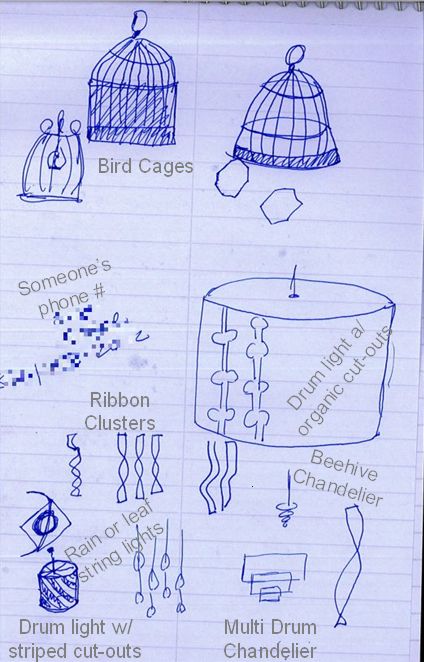 Bird Cages
Someone's
phone #
Drum light a/
organic cut-outs
Ribbon
Clusters
Beehive
Chandelier
Rain or leaf
string lights
Drum light w/
striped cut-outs
Multi Drum
Chandelier